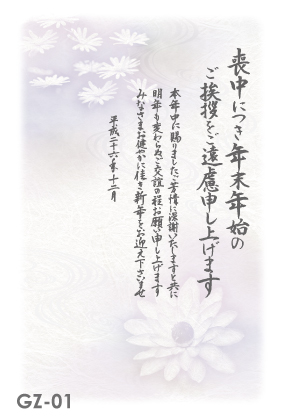 喪中につき年末年始の
ご挨拶をご遠慮申し上げます
本年中に賜りましたご芳情に深謝いたしますと共に
明年も変わらぬご交誼の程お願い申し上げます
みなさまお健やかに佳き新年をお迎え下さいませ
平成二十六年十二月
GZ-01